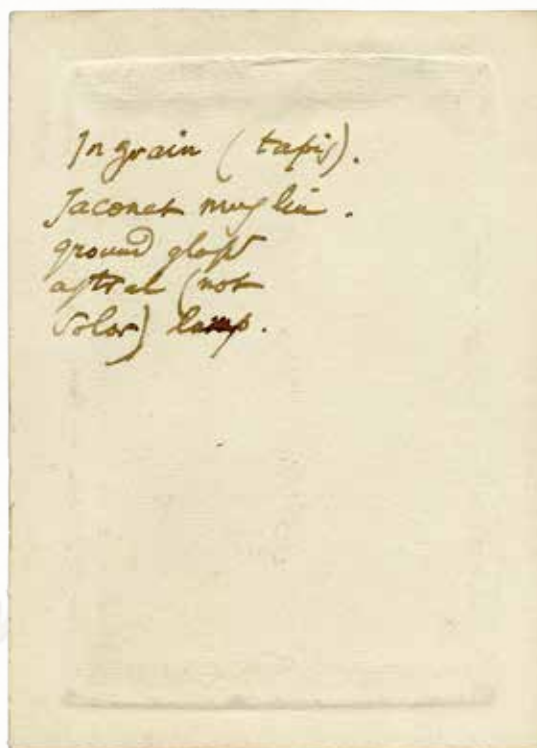 Ingrain (tapis).
Jaconet muslin.
ground glass
astral (not
solar) lamp.